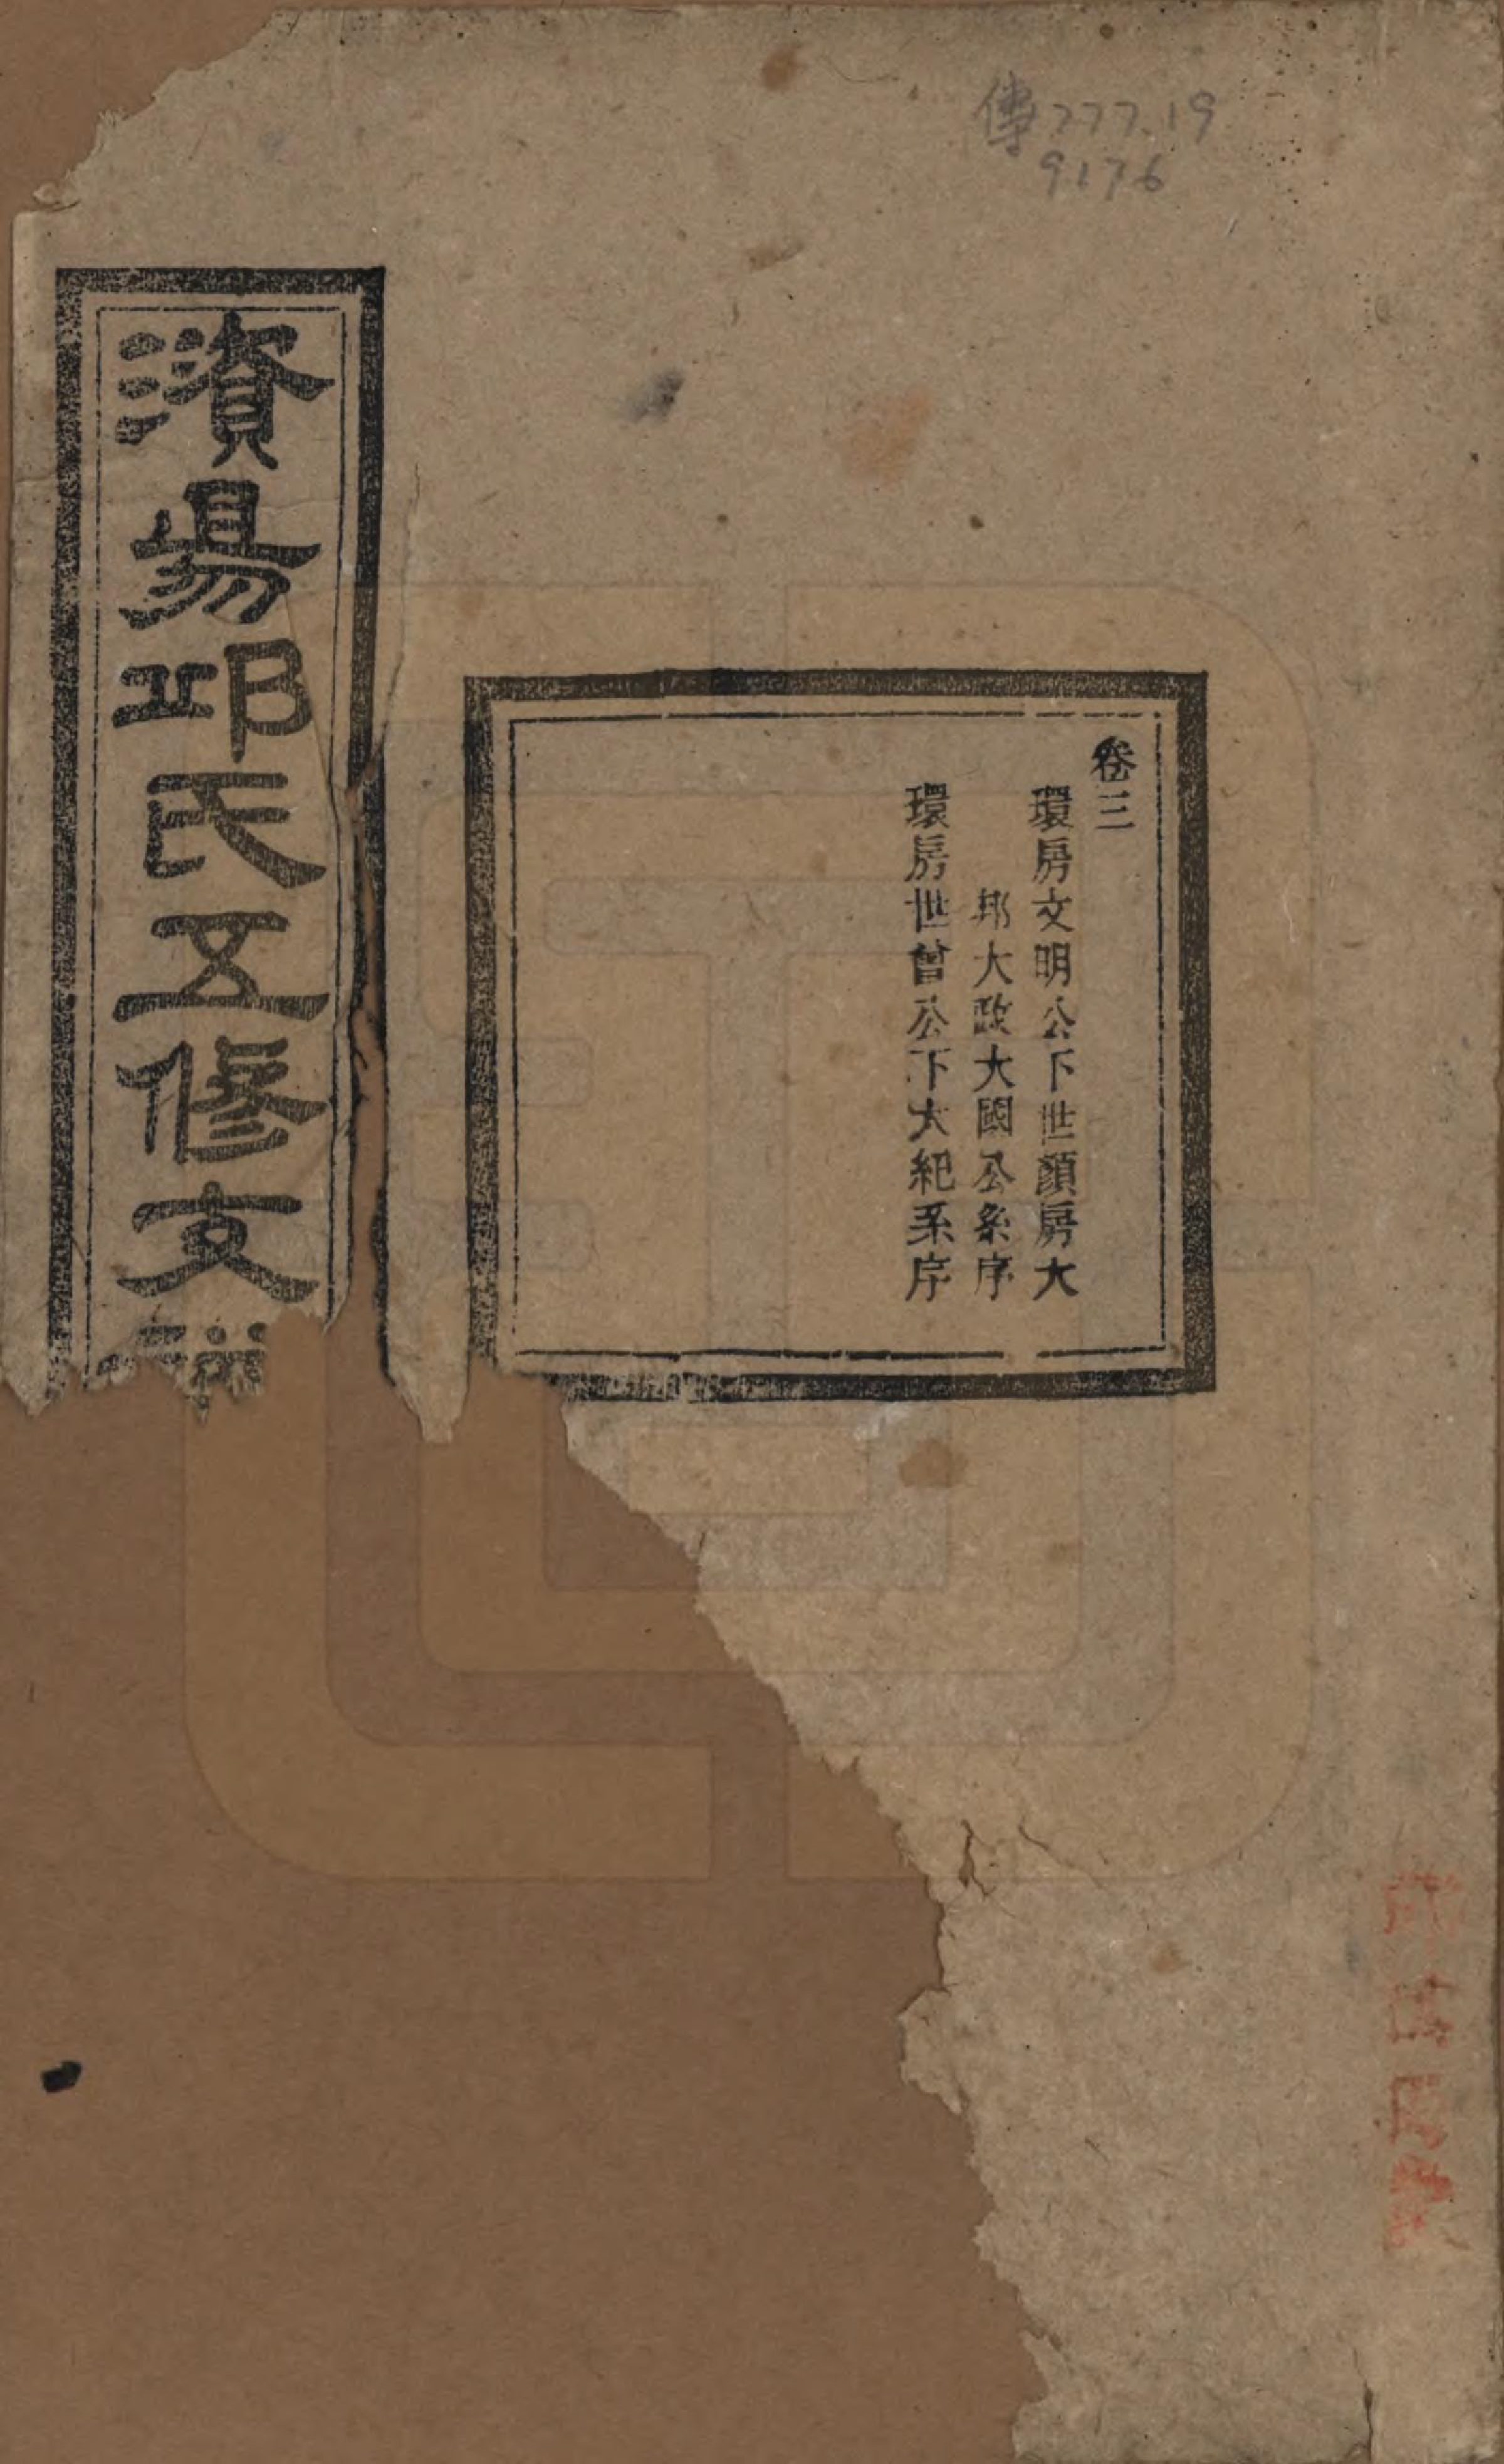 傳777.19
9176
卷三
環房文明公下世顏房大
邦大政大國公系序
環房世曾公下大紀系序
濱暘邱氏五修支譜